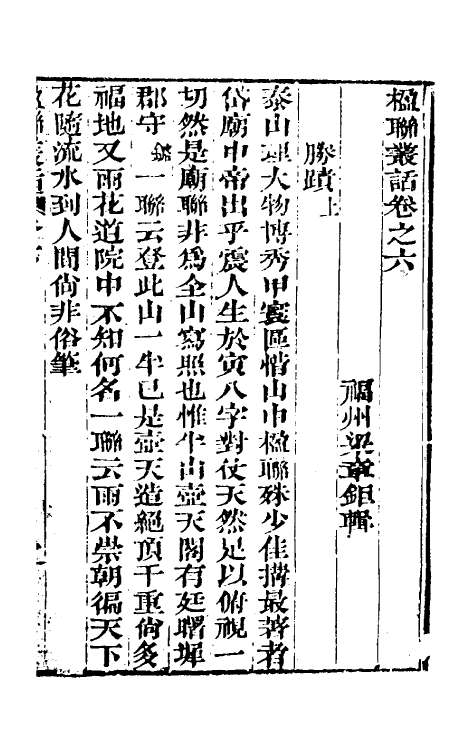 楹聯叢話卷之六
福州梁章鉅輯
勝蹟上
泰山雄大物博秀甲寰區惜山中楹聯殊少佳搆最著者
岱廟中帝出乎震人生於寅八字對仗天然足以俯視一
切然是廟聯非為全山寫照也惟半山壺天閣有廷曙墀
郡守鏴一聯云登此山一半已是壺天造絕頂千重尙多
福地又雨花道院中不知何名一聯云雨不崇朝徧天下
花隨流水到人間尙非俗筆